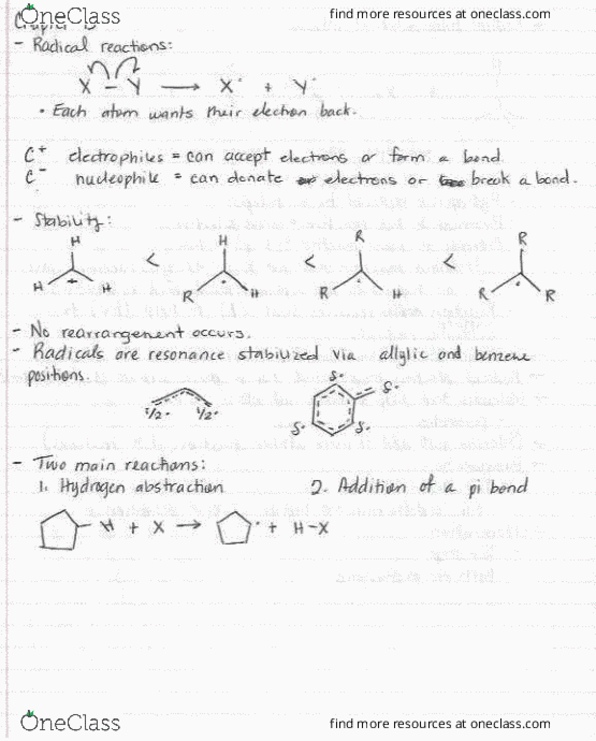 OneClass
find more resources at oneclass.com
- Radical reactions:
X – Y → X· + Y·
• Each atom wants their electron back.
C+ electrophiles = can accept electrons or form a bond
C- nucleophile = can donate electrons or break a bond.
- Stability:
H H R R
< < <
H H R H R H R R
- No rearrangement occurs.
- Radicals are resonance stabilized via allylic and benzene
positions.
δ· δ·
1/2· 1/2· δ· δ·
- Two main reactions:
1. Hydrogen abstraction 2. Addition of a pi bond
H + X → · + H-X
OneClass
find more resources at oneclass.com